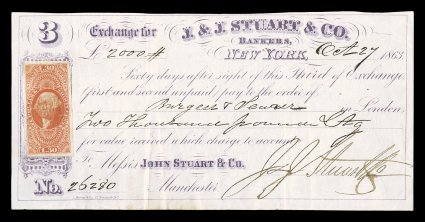 3 Exchange for J. & J. STUART & CO.
BANKERS,
£ 2000 # NEW YORK, Oct 27 1865
Sixty days after sight of this Third of Exchange
first and second unpaid, pay to the order of
Burgess & in London,
Two thousand pounds Stg
for value received which charge to account
To Messrs JOHN STUART & CO. J J Stuart & Co
No. 26280 Manchester